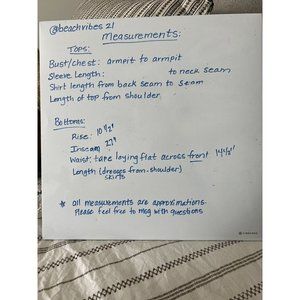 @beachvibes 21
Measurements:
Tops:
Bust/chest: armpit to armpit
Sleeve Length: to neck seam
Shirt length from back seam to seam
Length of top from shoulder
Bottoms:
Rise: 10 1/2"
Inseam 27"
Waist: tape laying flat across front 14 1/2"
Length (dresses from shoulder)
skirts
* all measurements are approximations.
Please feel free to msg with questions